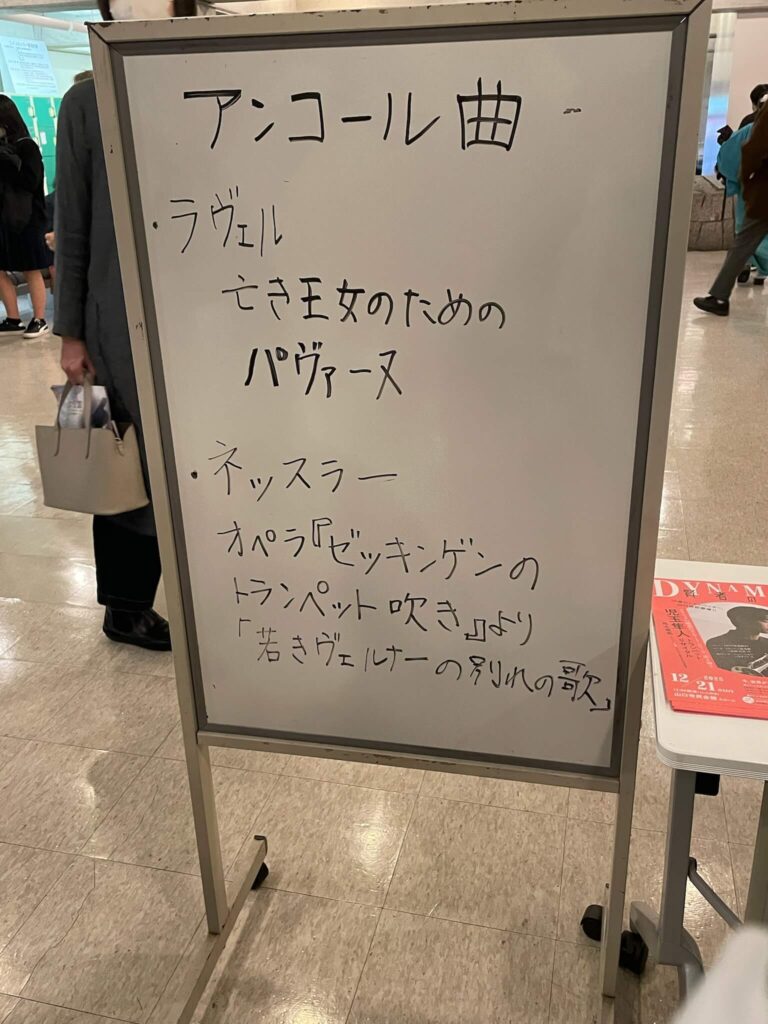 アンコール曲
・ラヴェル
亡き王女のための
パヴァーヌ
・ネッスラー
オペラ『ゼッキンゲンの
トランペット吹き』より
「若きヴェルナーの別れの歌」
DYNAM
児玉隼人
12/21
2025